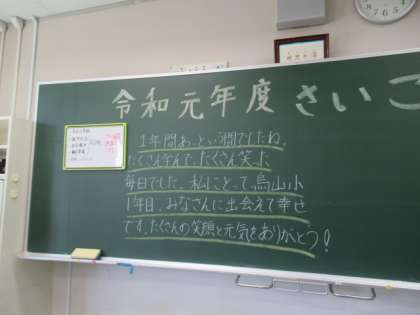 令和元年度 さいこ
1年間あっという間でしたね。
たくさん学んで、たくさん笑った
毎日でした。私にとって、烏山小
1年目、みなさんに出会えて幸せ
です。たくさんの笑顔と元気をありがとう!